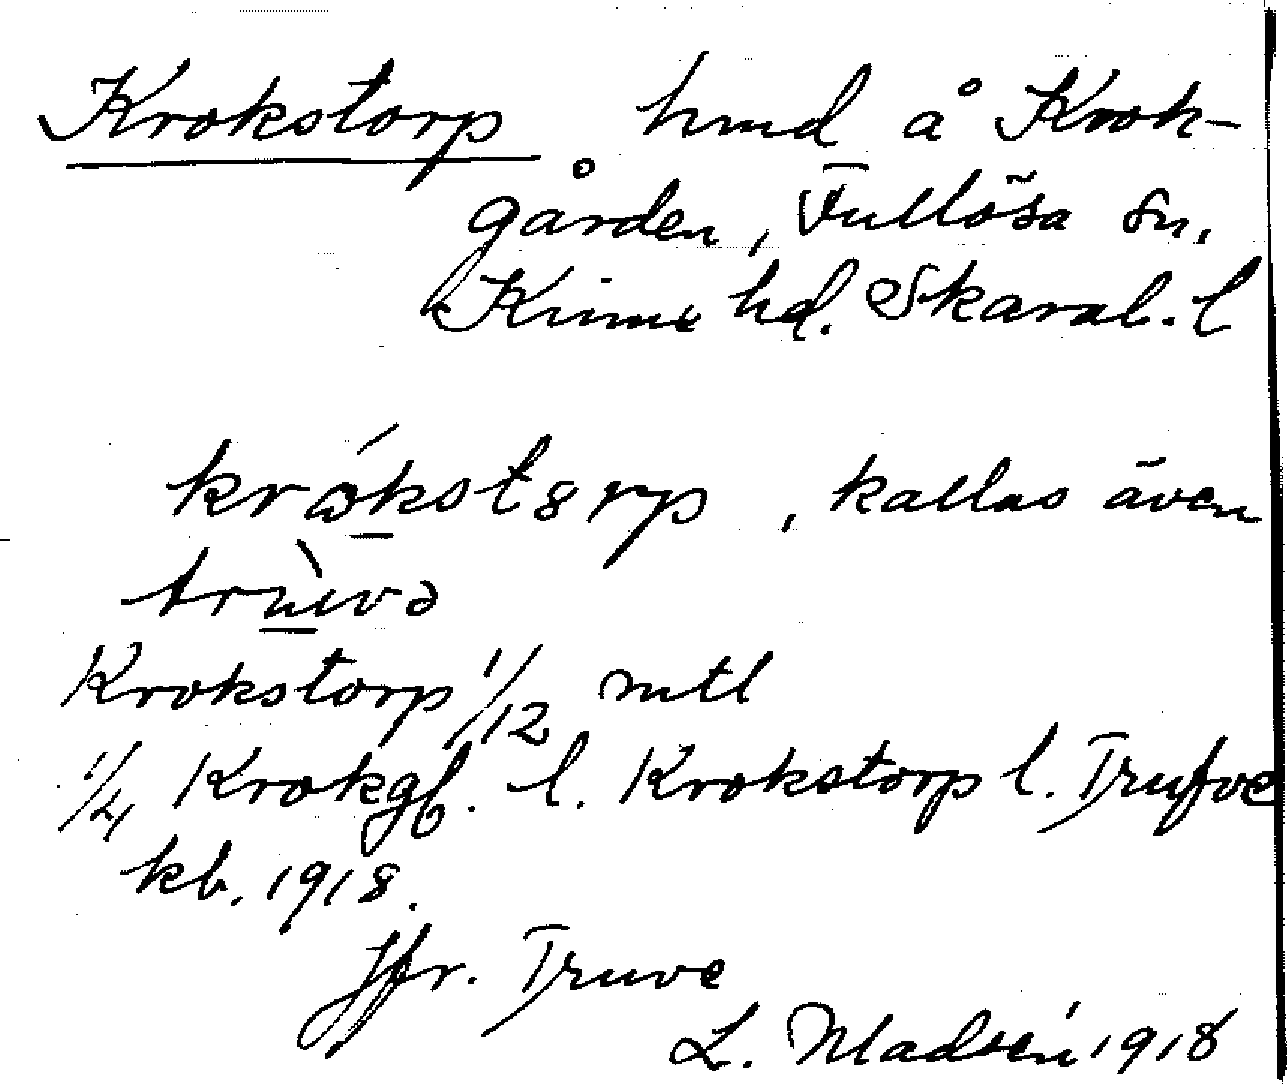 Krokstorp hmd å Krok-
gården, Fullösa sn,
Kinne hd. Skarab. l
krókst8rp, kallas även
trùvə
Krokstorp 1/12 mtl
1/4 Krokgd. l. Krokstorp l. Trufve
kb. 1918.
Jfr. Truve
L. Madsén 1918